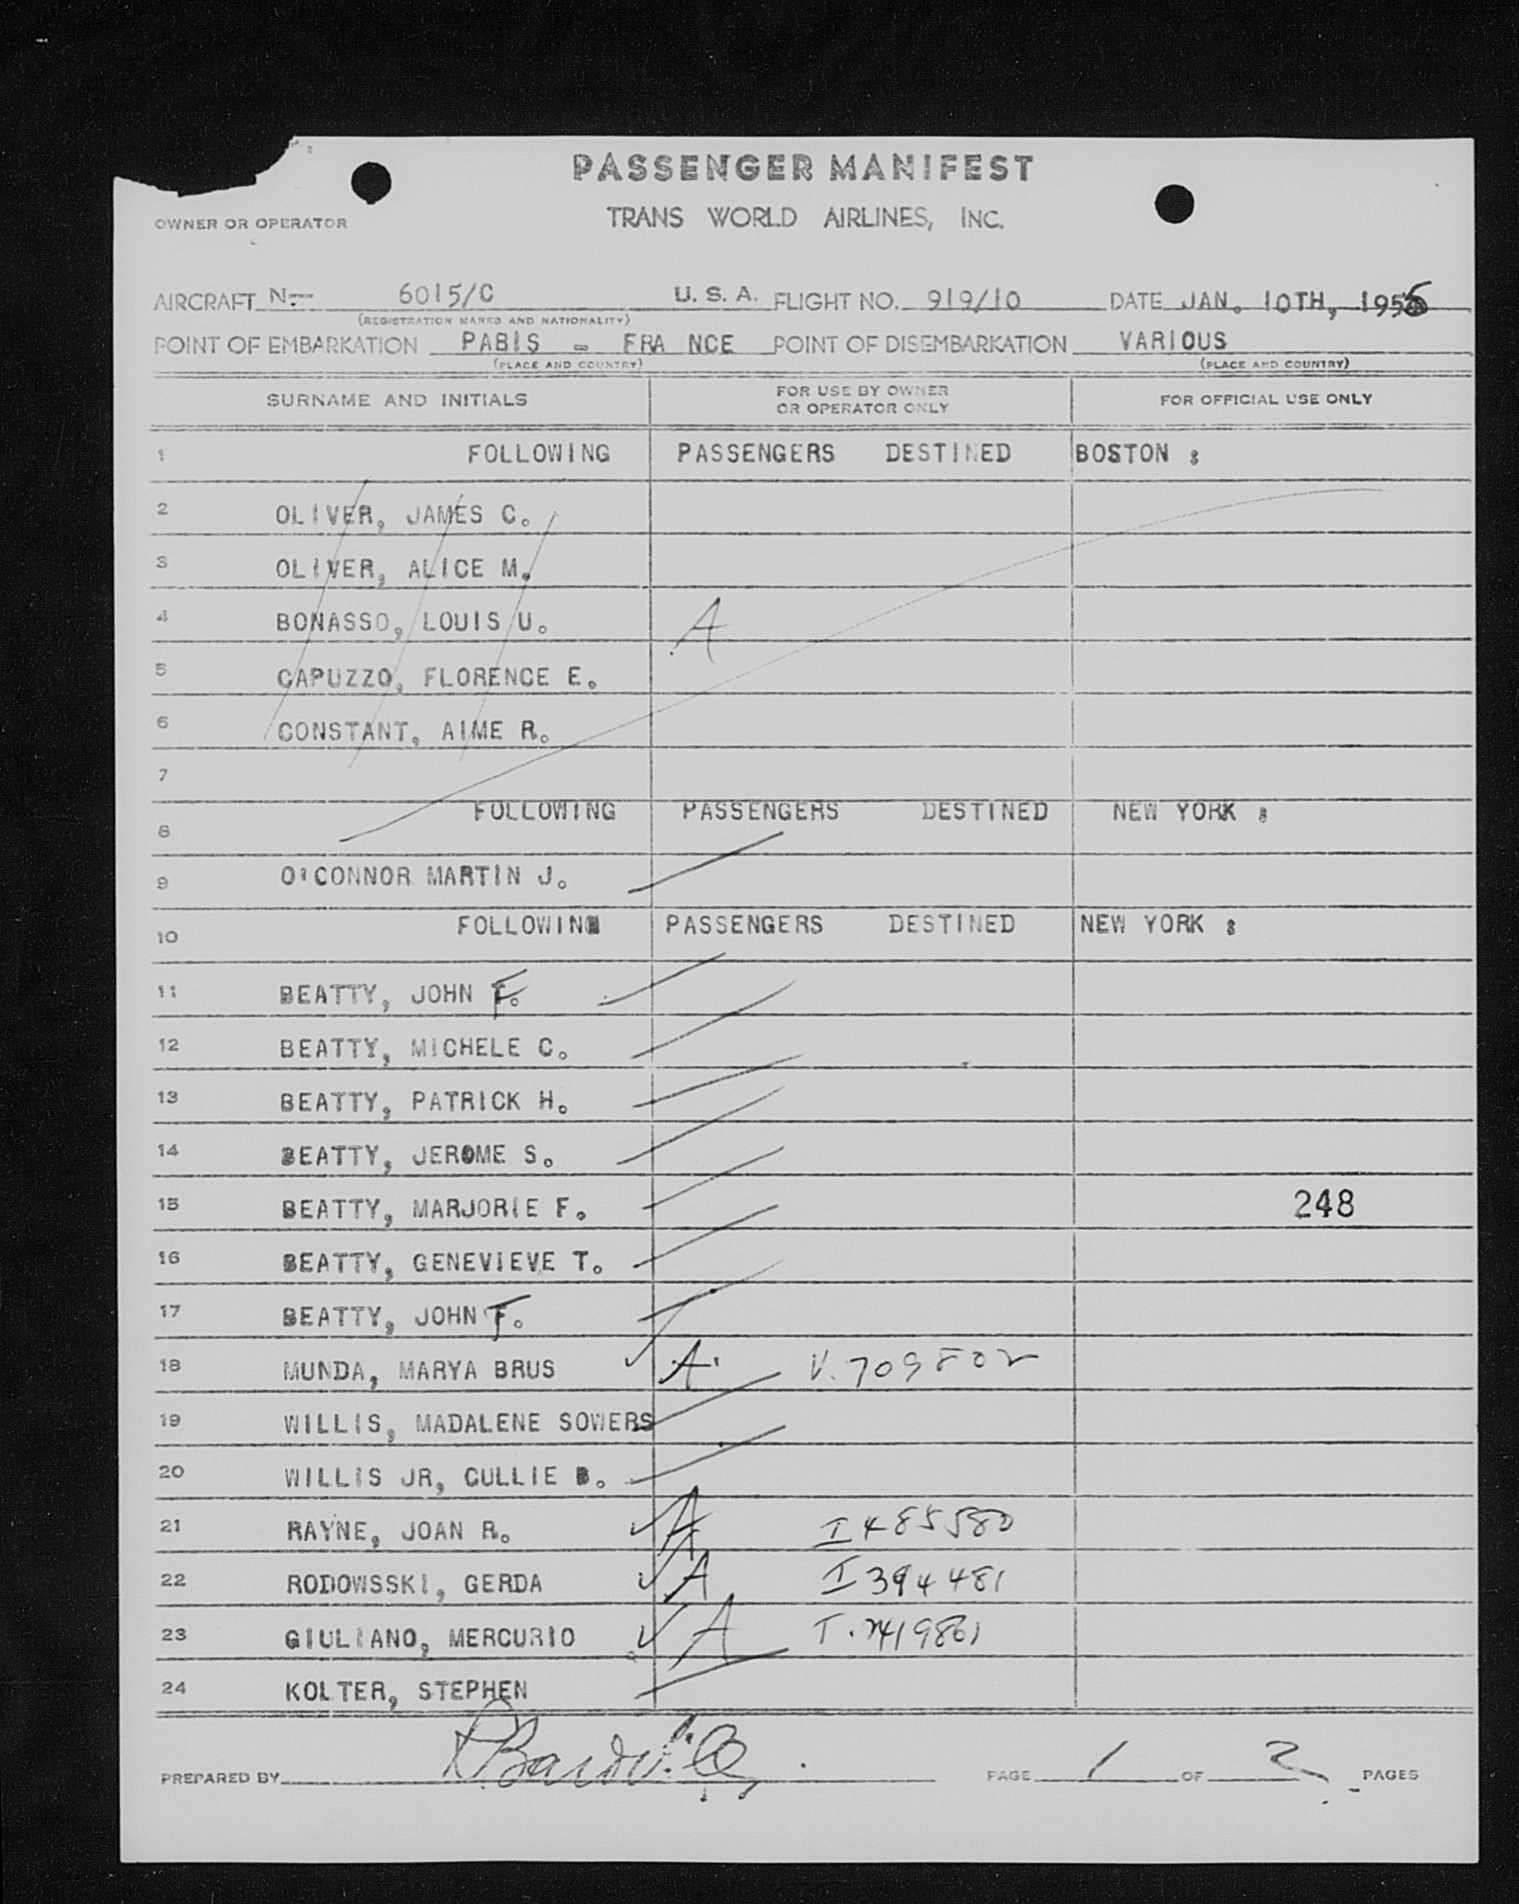 PASSENGER MANIFEST
OWNER OR OPERATOR TRANS WORLD AIRLINES, INC.
AIRCRAFT N.- 6015/C U. S. A. FLIGHT NO. 919/10 DATE JAN. 10TH, 1956
(REGISTRATION MARKS AND NATIONALITY)
POINT OF EMBARKATION PABIS - FRA NCE POINT OF DISEMBARKATION VARIOUS
(PLACE AND COUNTRY) (PLACE AND COUNTRY)
SURNAME AND INITIALS FOR USE BY OWNER OR OPERATOR ONLY FOR OFFICIAL USE ONLY
1 FOLLOWING PASSENGERS DESTINED BOSTON :
2 OLIVER, JAMES C.
3 OLIVER, ALICE M.
4 BONASSO, LOUIS U. A
5 CAPUZZO, FLORENCE E.
6 CONSTANT, AIME R.
7
8 FOLLOWING PASSENGERS DESTINED NEW YORK :
9 O'CONNOR MARTIN J.
10 FOLLOWING PASSENGERS DESTINED NEW YORK :
11 BEATTY, JOHN F.
12 BEATTY, MICHELE C.
13 BEATTY, PATRICK H.
14 BEATTY, JEROME S.
15 BEATTY, MARJORIE F. 248
16 BEATTY, GENEVIEVE T.
17 BEATTY, JOHN F.
18 MUNDA, MARYA BRUS A V.709802
19 WILLIS, MADALENE SOWERS
20 WILLIS JR, CULLIE B.
21 RAYNE, JOAN R. A I485580
22 RODOWSSKI, GERDA A I394481
23 GIULIANO, MERCURIO A
24 KOLTER, STEPHEN
PREPARED BY PAGE 1 OF 2 PAGES